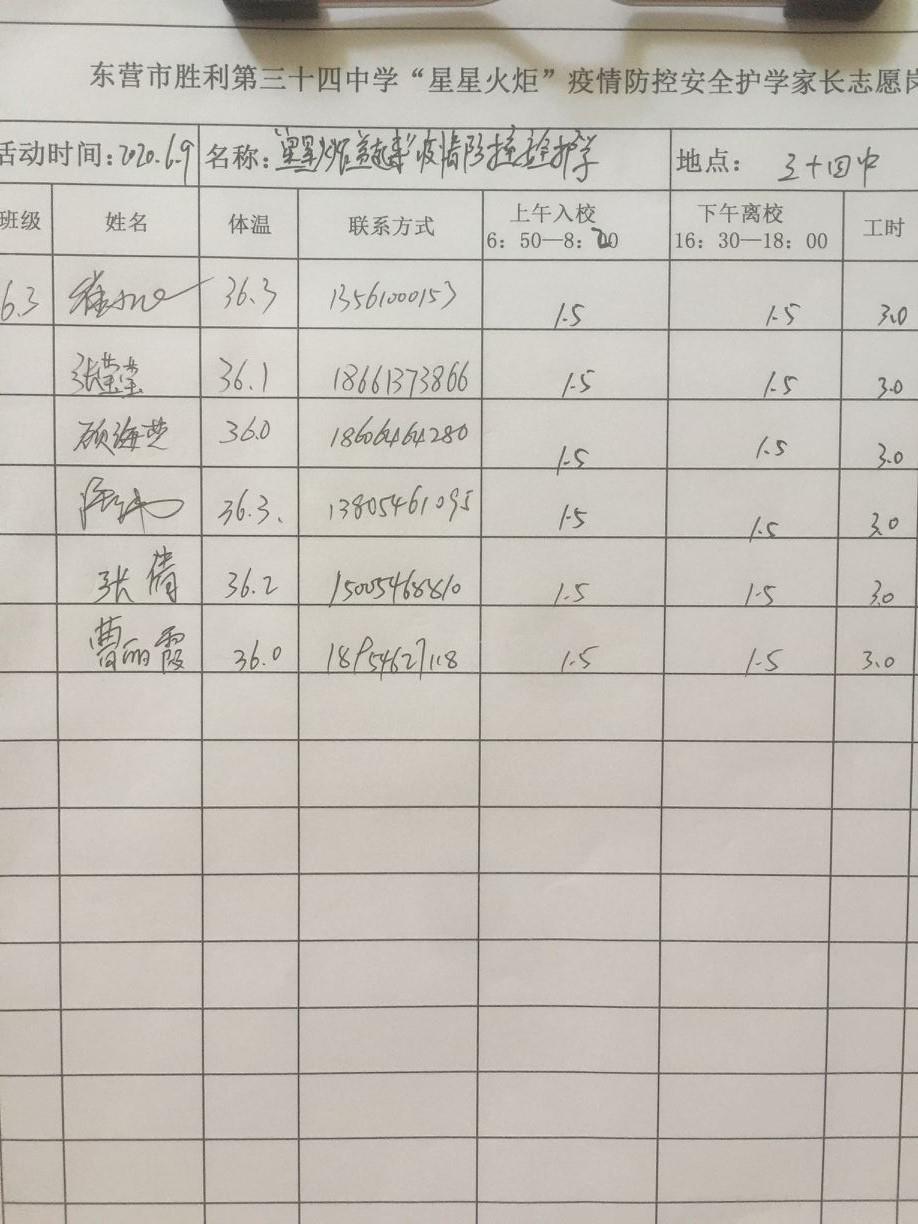 东营市胜利第三十四中学“星星火炬”疫情防控安全护学家长志愿岗
活动时间:2020.6.9 名称: 疫情防控安全护学 地点: 三十四中
班级 姓名 体温 联系方式 上午入校 下午离校 工时
6:50—8:20 16:30—18:00
6.3 36.3 13561000153 1.5 1.5 3.0
张莹莹 36.1 18661373866 1.5 1.5 3.0
顾海芝 36.0 18606464280 1.5 1.5 3.0
36.3. 13805461095 1.5 1.5 3.0
张倩 36.2 15005468810 1.5 1.5 3.0
曹丽霞 36.0 1.5 1.5 3.0